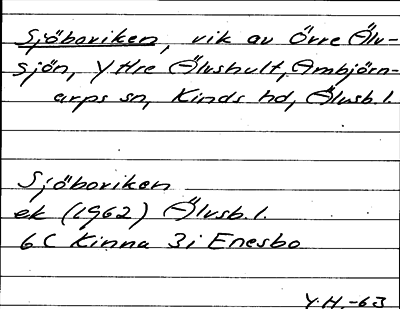 Sjöboviken, vik av Övre Älv-
sjön, Yttre Älvshult, Ambjörn-
arps sn, Kinds hd, Älvsb.l.
Sjöboviken
ek (1962) Älvsb.l.
6C Kinna 3i Enesbo
Y.H.-63